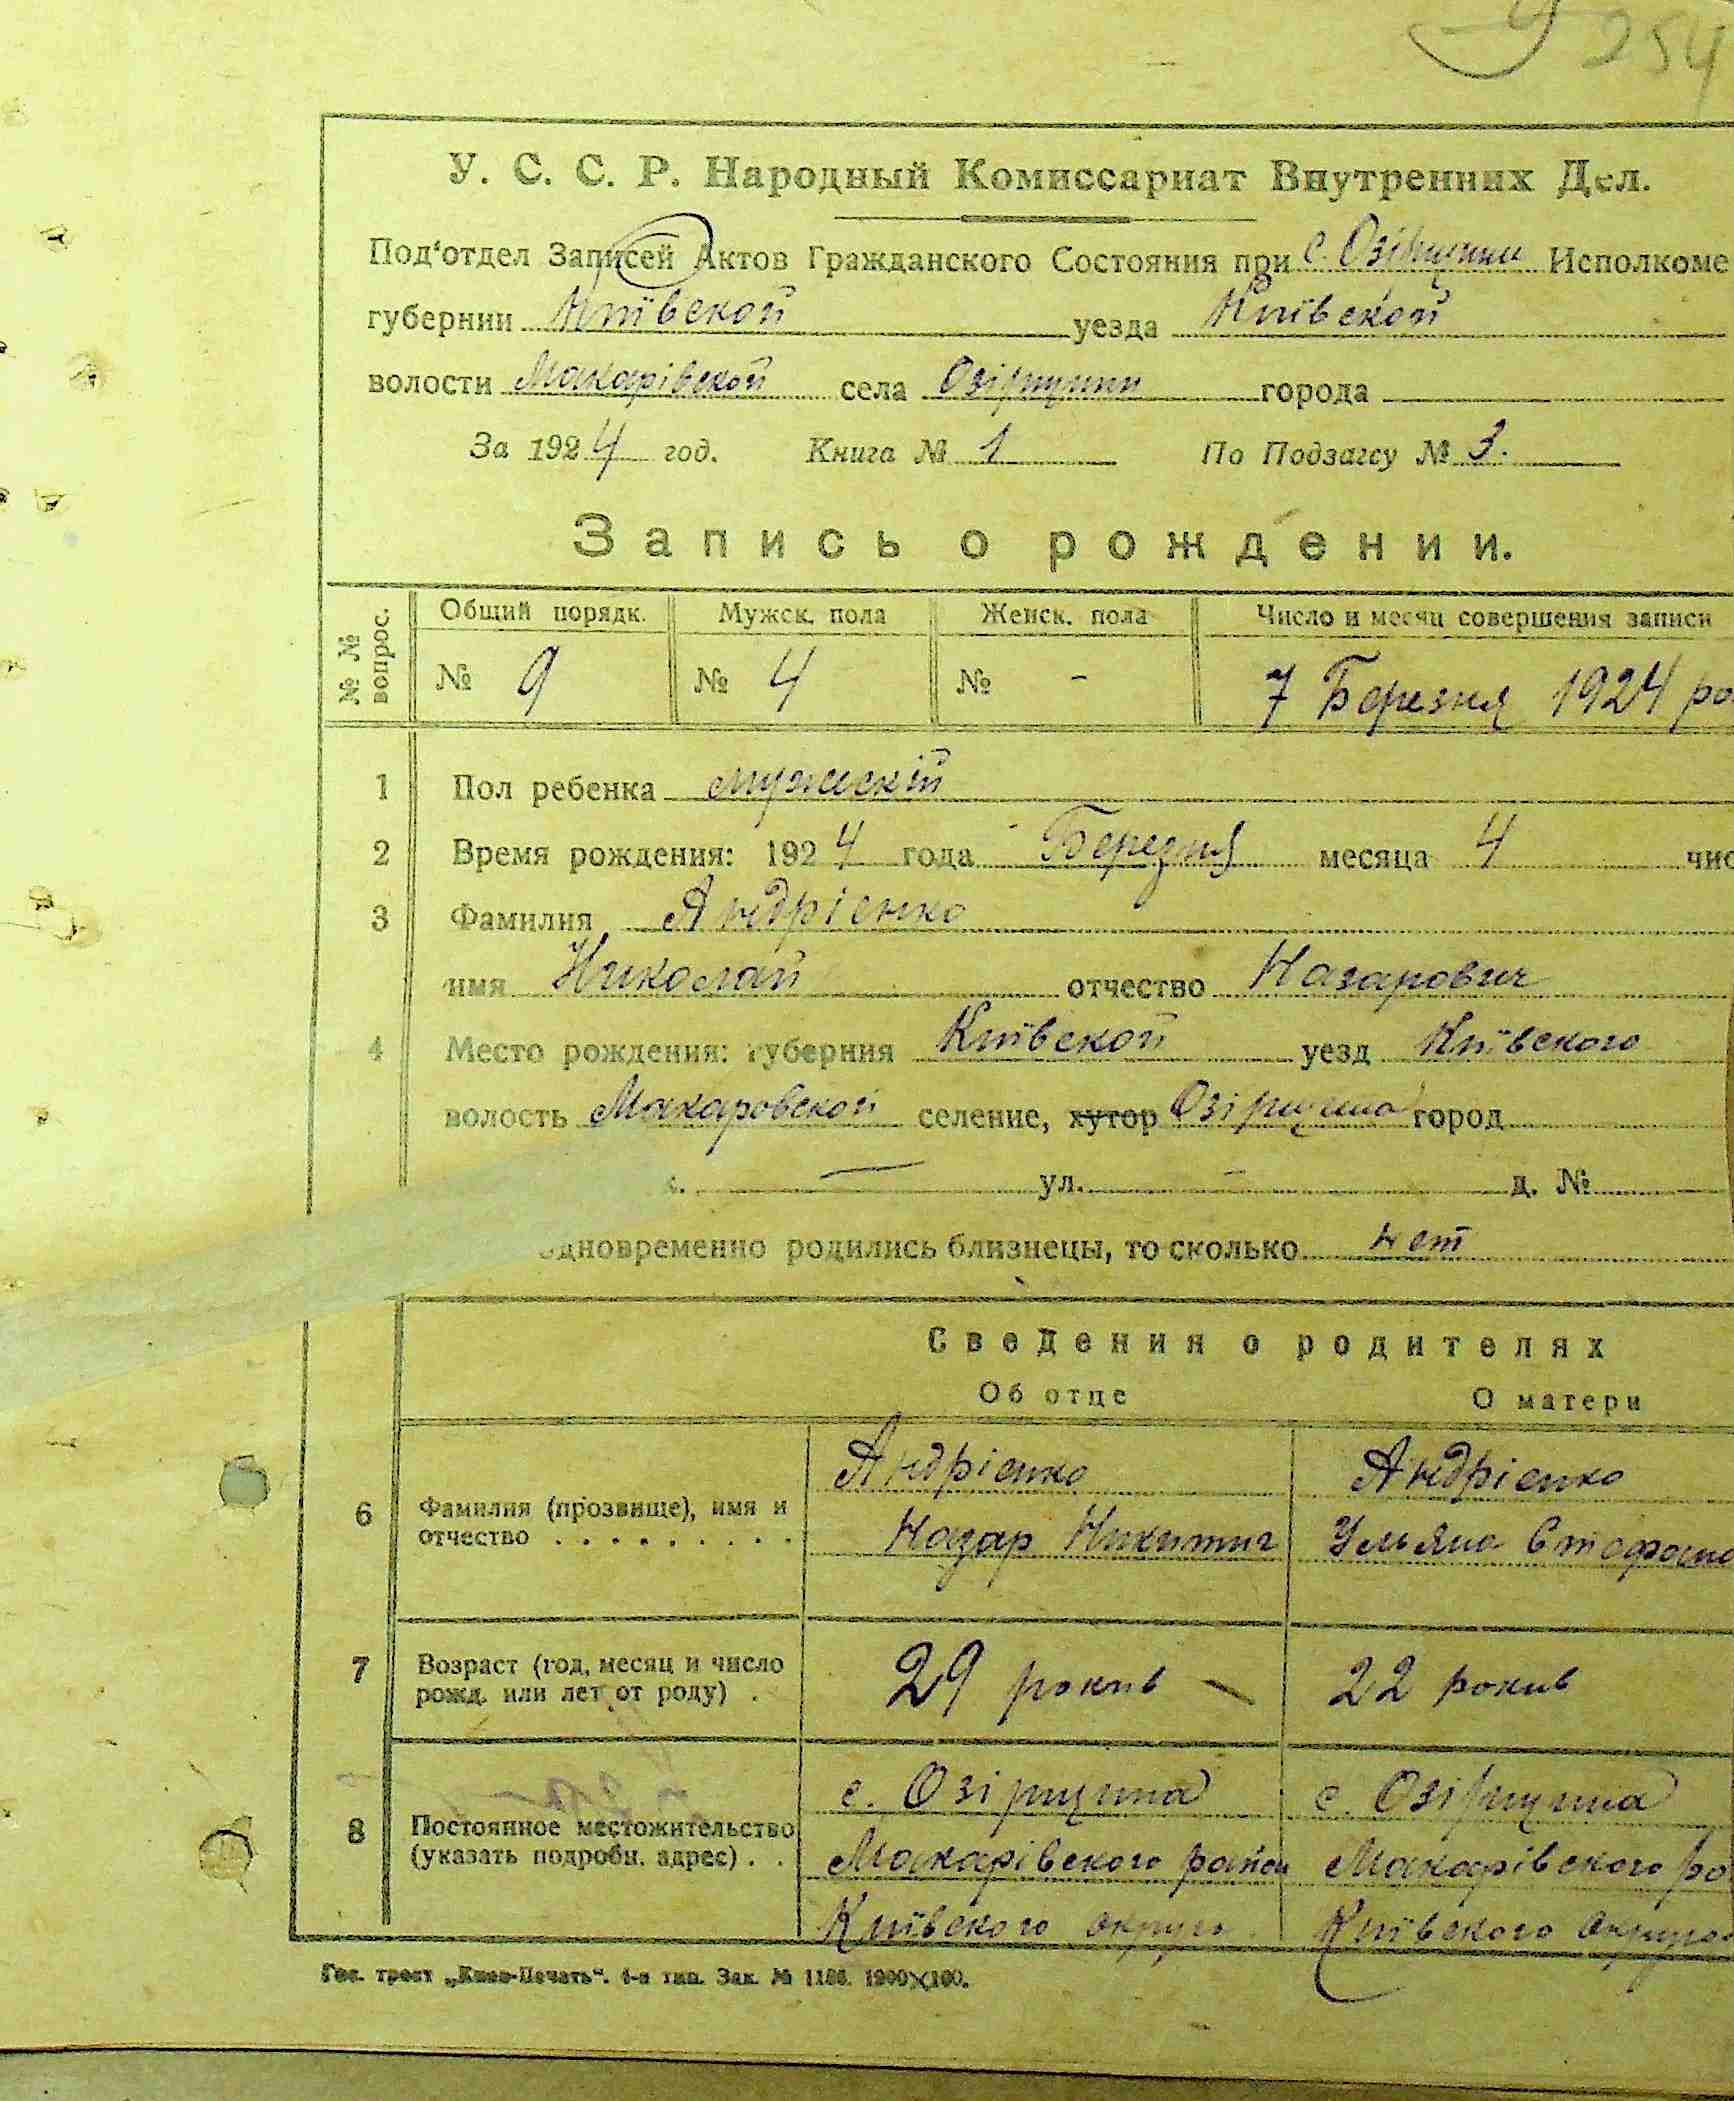 254
У. С. С. Р. Народный Комиссариат Внутренних Дел.
Под‘отдел Записей Актов Гражданского Состояния при с. Озірщини Исполкоме
губернии Київской уезда Київской
волости Макарівской села Озірщини города
За 1924 год. Книга № 1 По Подзагсу № 3.
Запись о рождении.
№ № вопрос. Общий порядк. Мужск. пола Женск. пола Число и месяц совершения записи
№ 9 № 4 № - 7 Березня 1924 ро
1 Пол ребенка мужескій
2 Время рождения: 1924 года Березня месяца 4 чис
3 Фамилия Андрієнко
имя Николай отчество Назарович
4 Место рождения: губерния Київской уезд Київского
волость Макаровской селение, хутор Озірщина город
ул. - д. №
одновременно родились близнецы, то сколько нет
Сведения о родителях
Об отце О матери
Андрієнко Андрієнко
6 Фамилия (прозвище), имя и отчество . . . . . . . . . Назар Никитич Ульяна Стефано
7 Возраст (год, месяц и число рожд. или лет от роду) . 29 рокив 22 рокив
с. Озірщина с. Озірщина
8 Постоянное местожительство (указать подробн. адрес) . . Макарівского район Макарівского ра
Київского округа Київского округа
Гос. трест „Киев-Печать“. 4-я тип. Зак. № 1186. 1900×100.